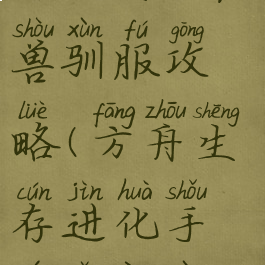 shòu xùn fú gōng
兽驯服攻
lüè fāng zhōu shēng
略(方舟生
cún jìn huà shǒu
存进化手